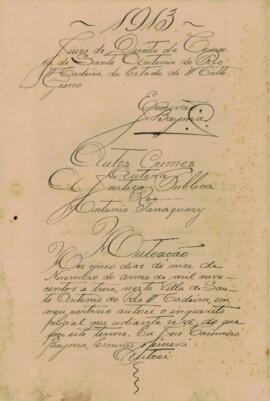 ~ 1913 ~
Juizo de Direito da Comar
ca de Santo Antonio do Rio
Madeira, do Estado de Matto
Grosso
Escrivão
Bayma
Autos Crimes
Autora
A Justiça Publica
Reo
Antonio
Autoação
Aos cinco dias do mez de
Novembro do anno de mil nove
centos e treze, nesta Villa de San
to Antonio do Rio Madeira, em
meu cartorio autoei o inquerito
policial que adiante se vê, do que
faço este termo. Eu José Casimiro
Bayma, Escrivão